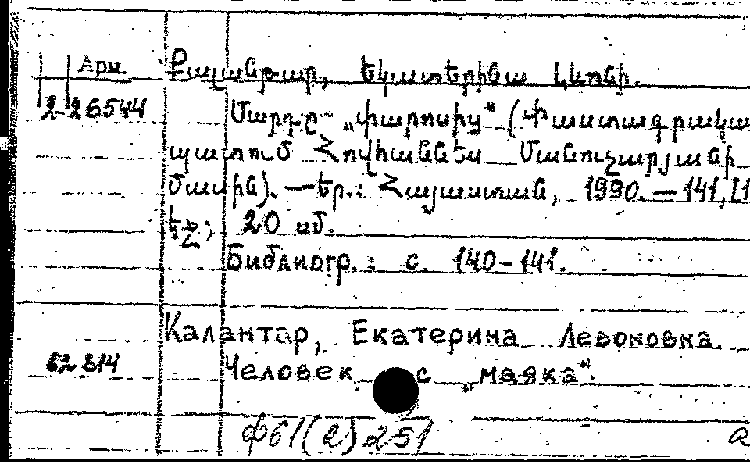 Арм.
Քալանթար, Եկատերինա Լևոնի.
2-26544
Մարդը „փարոսից" (Փաստագրական
պատում Հովհաննես Մանուչարյանի
մասին). — Եր.: Հայաստան, 1990. — 141, [1
էջ; 20 սմ.
Библиогр.: с. 140-141.
Калантар, Екатерина Левоновна
62 814
Человек с „маяка".
ф61(2)251
а